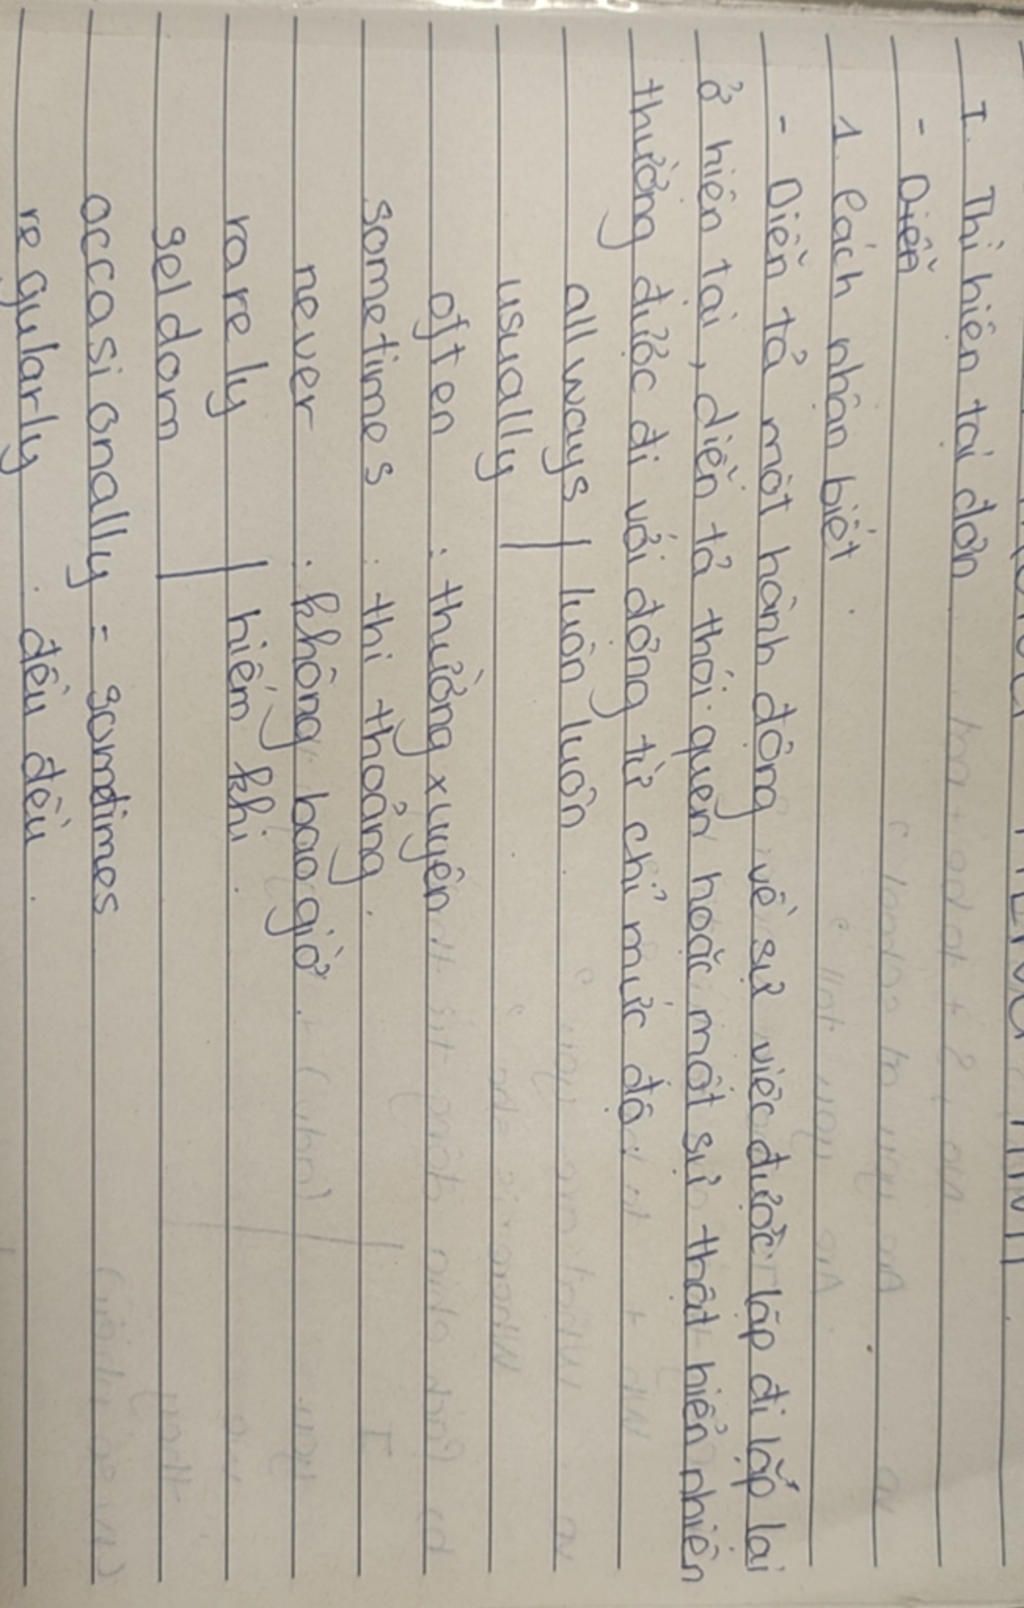 I. Thì hiện tại đơn
- Diễn
1. Cách nhận biết.
- Diễn tả một hành động về sự việc được lặp đi lặp lại
ở hiện tại, diễn tả thói quen hoặc một sự thật hiển nhiên
thường được đi với động từ chỉ mức độ.
allways | luôn luôn
usually
often : thường xuyên
sometimes : thi thoảng.
never : không bao giờ.
rarely | hiếm khi.
seldom
occasionally = somtimes
regularly : đều đều.